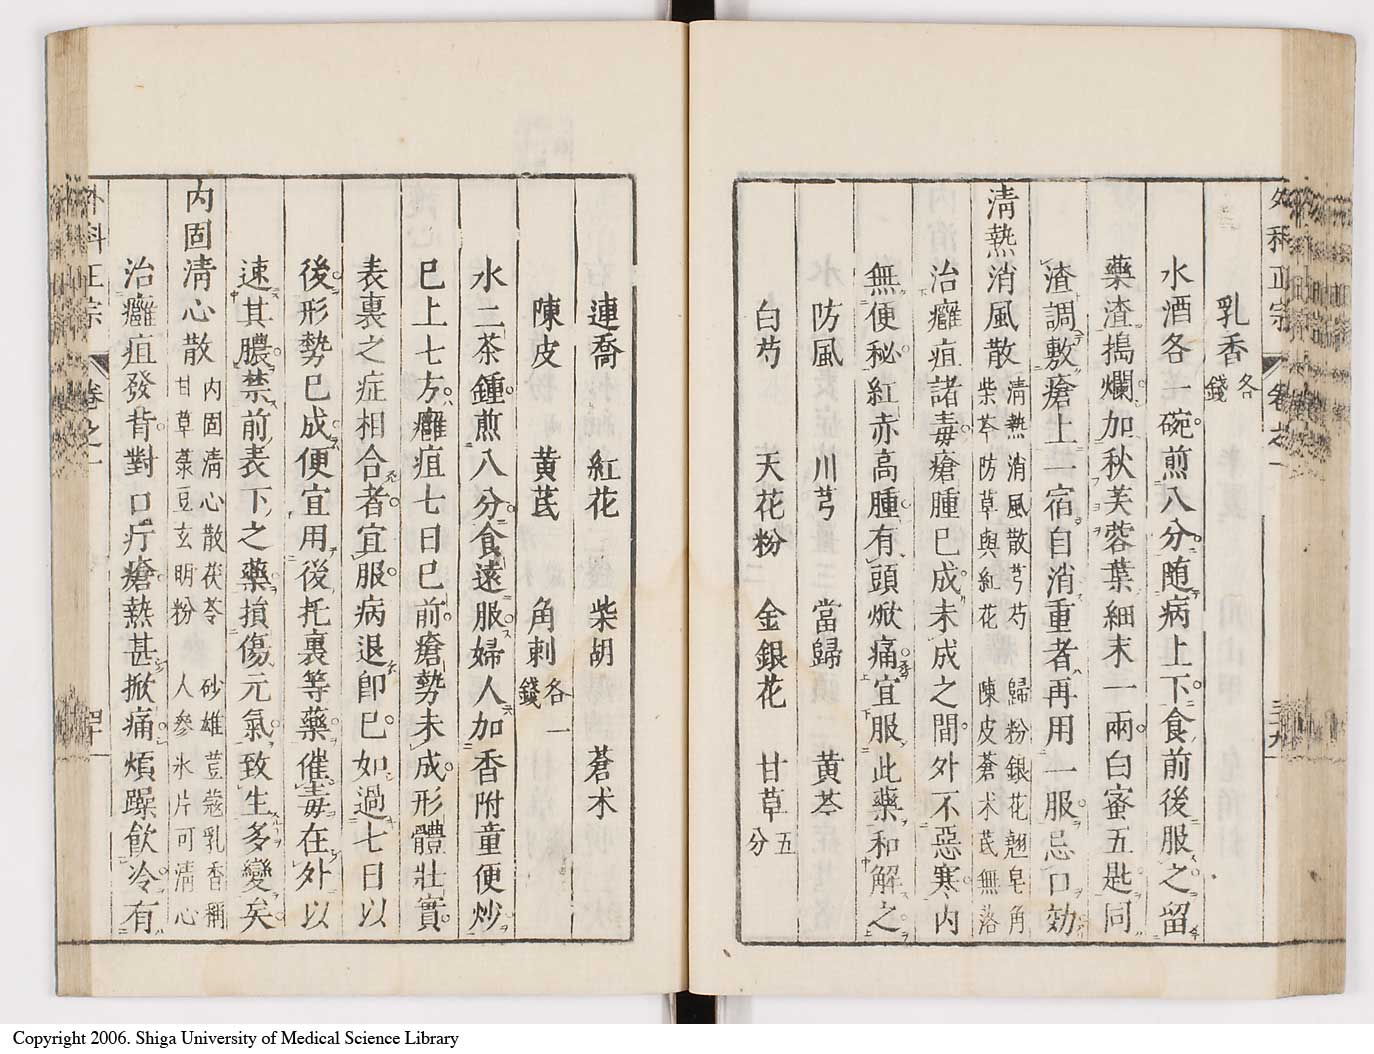 外科正宗 卷之一 三九
乳香各錢
水酒各一碗煎八分随病上下食前後服之留
藥渣搗爛加秋芙蓉葉細末一兩白蜜五匙同
渣調敷瘡上一宿自消重者再用一服忌口効
清熱消風散 清熱消風散芎芍 歸粉銀花翹皂角
柴芩防草與紅花 陳皮蒼术芪無落
治癰疽諸毒瘡腫已成未成之間外不惡寒内
無便秘紅赤高腫有頭焮痛宜服此藥和解之
防風 川芎 當歸 黄芩
白芍 天花粉 金銀花 甘草五分
連喬 紅花 柴胡 蒼术
陳皮 黄芪 角刺各一錢
水二茶鍾煎八分食遠服婦人加香附童便炒
已上七方癰疽七日已前瘡勢未成形體壯實
表裏之症相合者宜服病退即已如過七日以
後形勢已成便宜用後托裏等藥催毒在外以
速其膿禁前表下之藥損傷元氣致生多變矣
内固清心散 内固清心散茯苓 砂雄荳蔻乳香稱
甘草菉豆玄明粉 人參氷片可清心
治癰疽發背對口疔瘡熱甚焮痛煩躁飲冷有
外科正宗 卷之一 四十
Copyright 2006. Shiga University of Medical Science Library